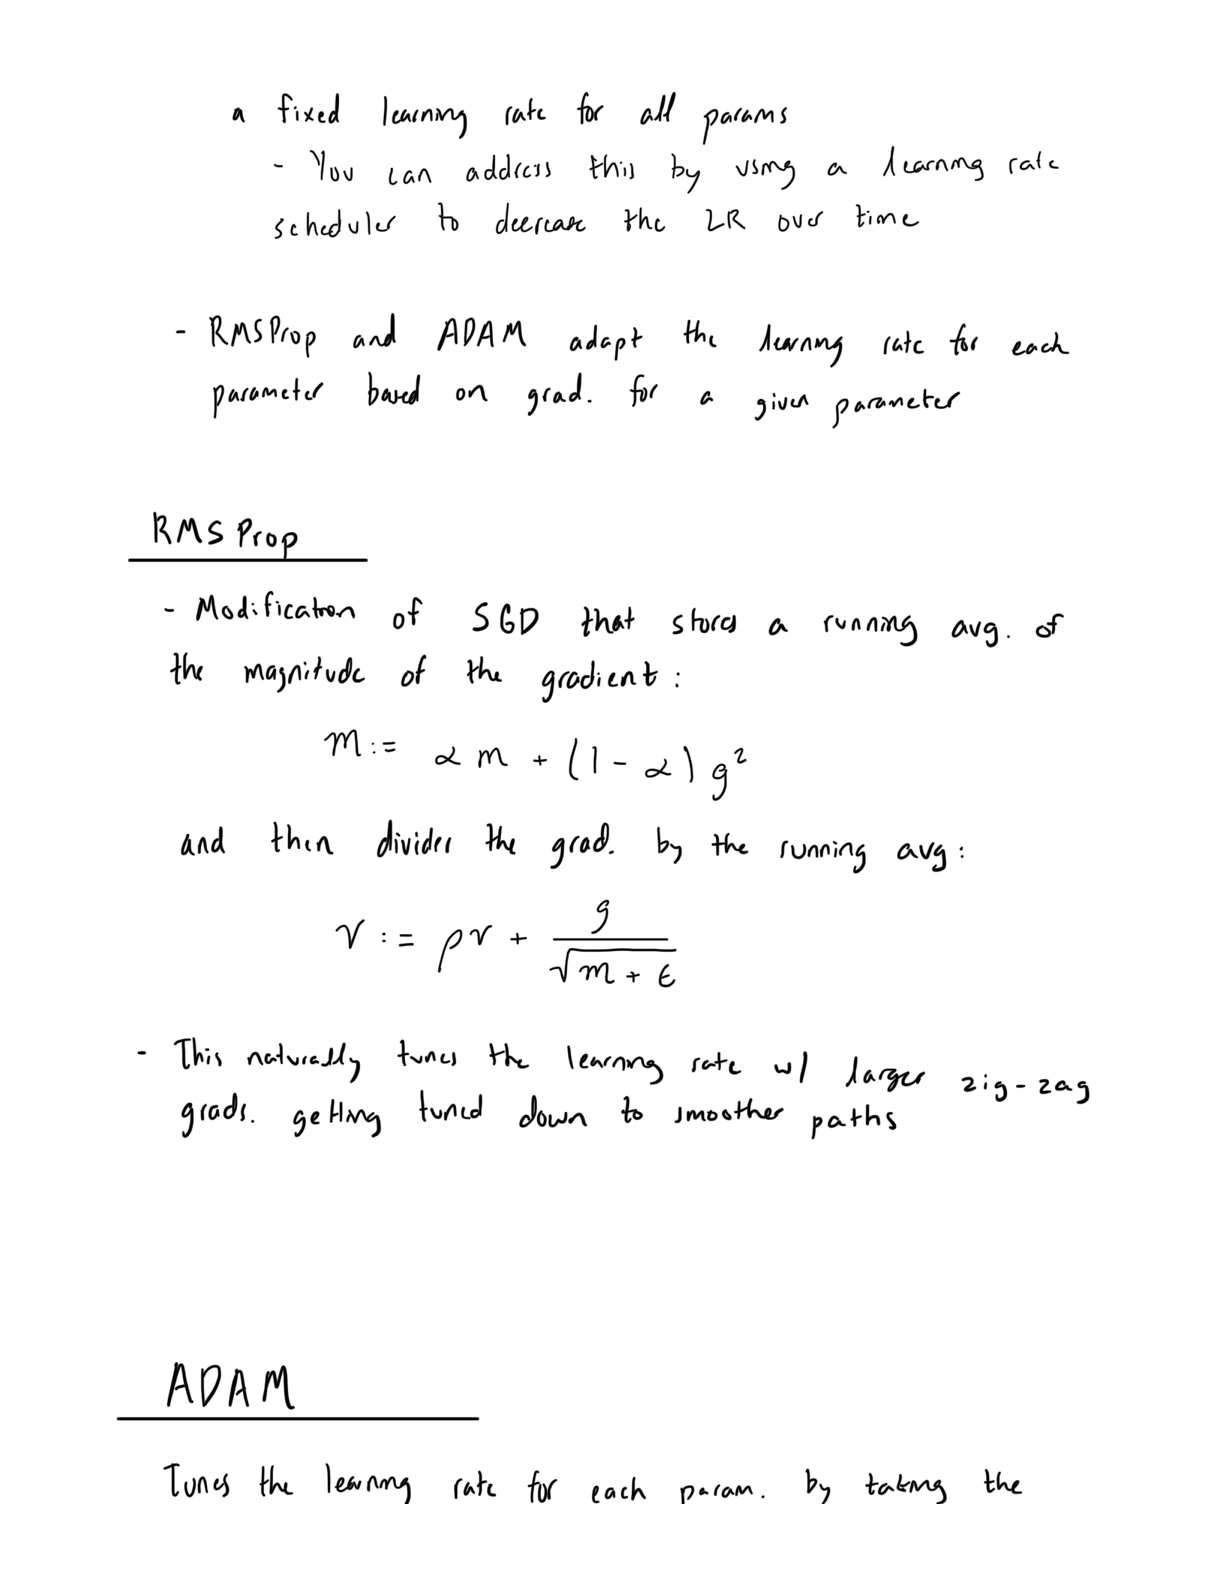 a fixed learning rate for all params
- You can address this by using a learning rate
scheduler to decrease the LR over time
- RMSProp and ADAM adapt the learning rate for each
parameter based on grad. for a given parameter
RMS Prop
- Modification of SGD that stores a running avg. of
the magnitude of the gradient:
m := α m + (1 - α) g²
and then divides the grad. by the running avg:
v := ρv + g / √(m + ε)
- This naturally tunes the learning rate w/ larger zig-zag
grads. getting tuned down to smoother paths
ADAM
Tunes the learning rate for each param. by taking the